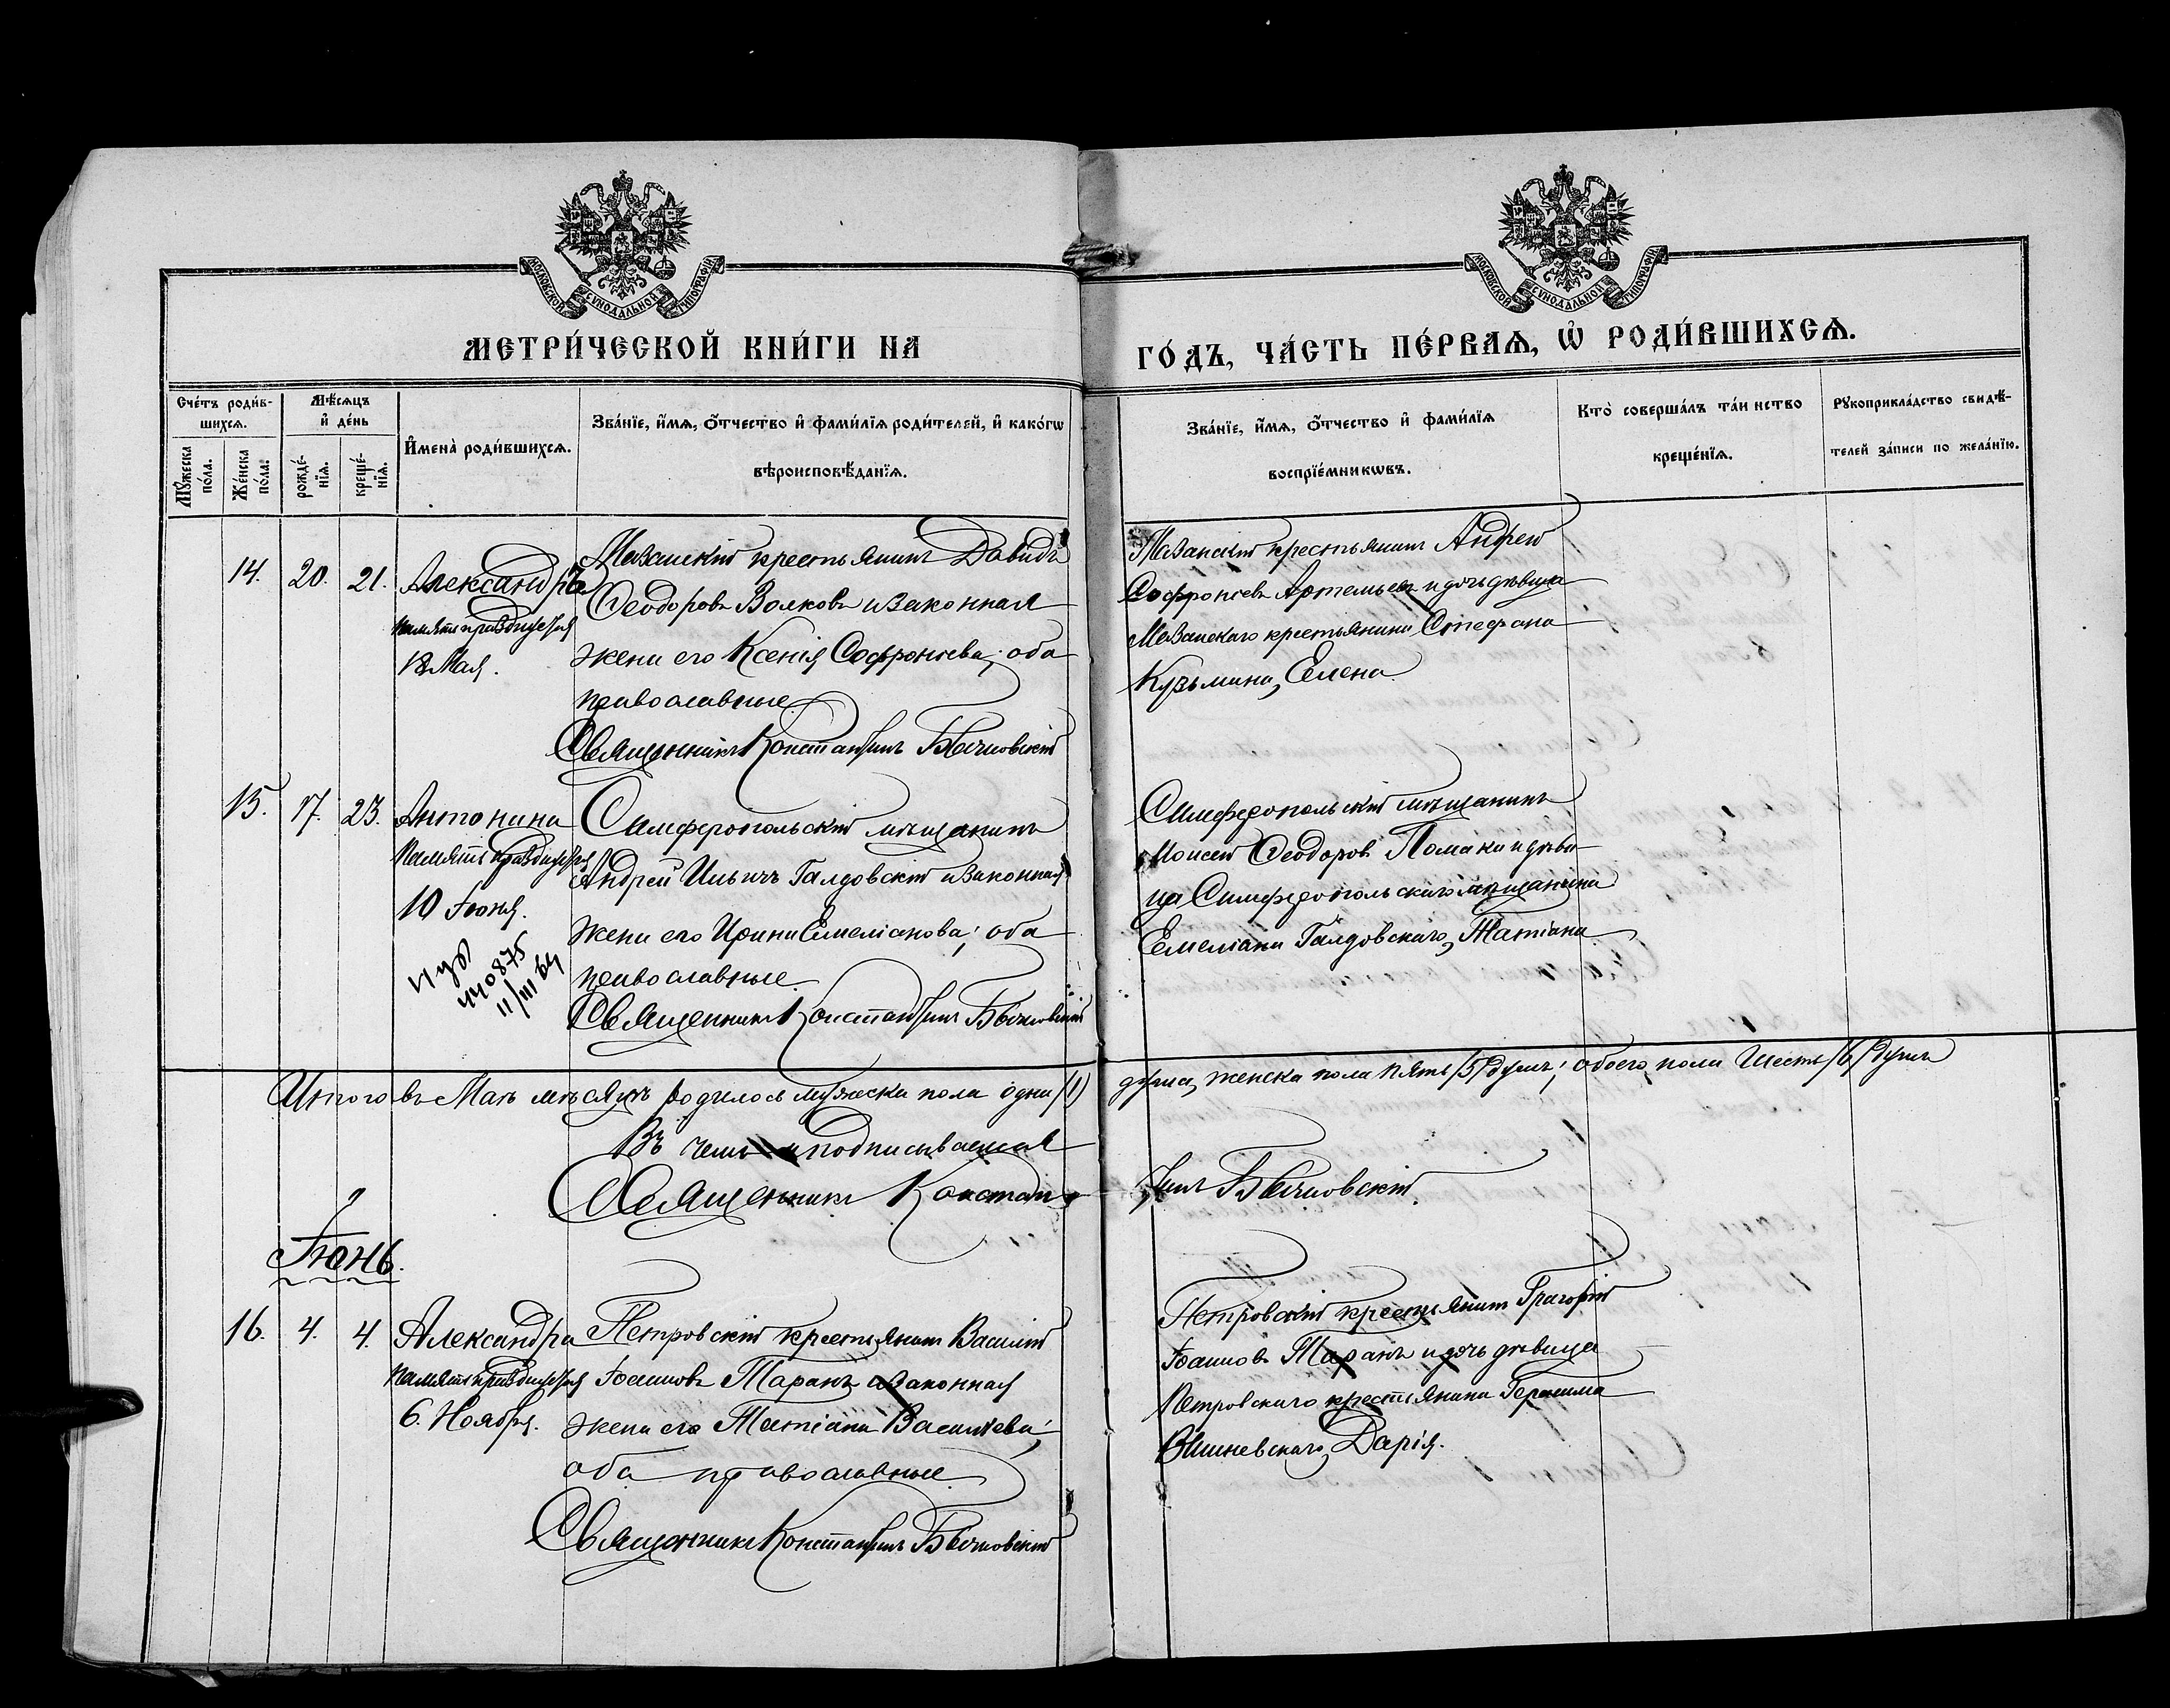 МОСКОВСКОЙ СѴНОДАЛЬНОЙ ТИПОГРАФІИ
МОСКОВСКОЙ СѴНОДАЛЬНОЙ ТИПОГРАФІИ
МЕТРИ́ЧЕСКОЙ КНИ́ГИ НА
ГО́ДЪ, ЧА́СТЬ ПЕ́РВАѦ, Ѡ҆ РОДИ́ВШИХСѦ.
Сче́тъ роди́в-
шихсѧ.
Мꙋ́жеска
по́ла.
Же́нска
по́ла.
Мѣ́сѧцъ
и҆ де́нь
рожде́-
нїѧ.
креще́-
нїѧ.
И҆мена̀ роди́вшихсѧ.
Зва́нїе, и҆́мѧ, ѻ҆́тчество и҆ фами́лїѧ роди́телей, и҆ како́гѡ
вѣроисповѣ́данїѧ.
Зва́нїе, и҆́мѧ, ѻ҆́тчество и҆ фами́лїѧ
воспрїе́мникѡвъ.
Кто̀ соверша́лъ та́инство
креще́нїѧ.
Рꙋкоприкла́дство свидѣ́-
телей за́писи по жела́нїю.
14. 20. 21. Александра
память празднуется
18 Мая.
Мазанскій крестьянинъ Давидъ
Ѳеодоровъ Волковъ и законная
жена его Ксенія Софроніева; оба
православные.
Священникъ Константинъ
Мазанскій крестьянинъ Андрей
Софроніевъ Артемьевъ и дочь дѣвица
Мазанскаго крестьянина Стефана
Кузьмина, Елена.
15. 17. 23. Антонина
Память празднуется
10 Іюня.
440875
11/III 64
Симферопольскій мѣщанинъ
Андрей Ильичъ Галдовскій и законная
жена его Ирина Емеліанова; оба
православные.
Священникъ Константинъ
Симферопольскій мѣщанинъ
Моисей Ѳеодоровъ Помаки и дѣви-
ца Симферопольскаго мѣщанина
Емеліана Галдовскаго, Татіана.
Итого въ Маѣ мѣсяцѣ родилось мужеска пола одна /1/
душа, женска пола пять /5/ душъ; обоего пола шесть /6/ душъ
Въ чемъ и подписываемся
Священникъ Констан-
тинъ
Іюнь.
16. 4. 4. Александра
Память празднуется
6. Ноября.
Петровскій крестьянинъ Василій
Іоанновъ Таранъ и законная
жена его Татіана Васильева;
оба православные.
Священникъ Константинъ
Петровскій крестьянинъ Григорій
Іоанновъ Таранъ и дочь дѣвица
Петровскаго крестьянина Герасима
Вишневскаго, Дарія.